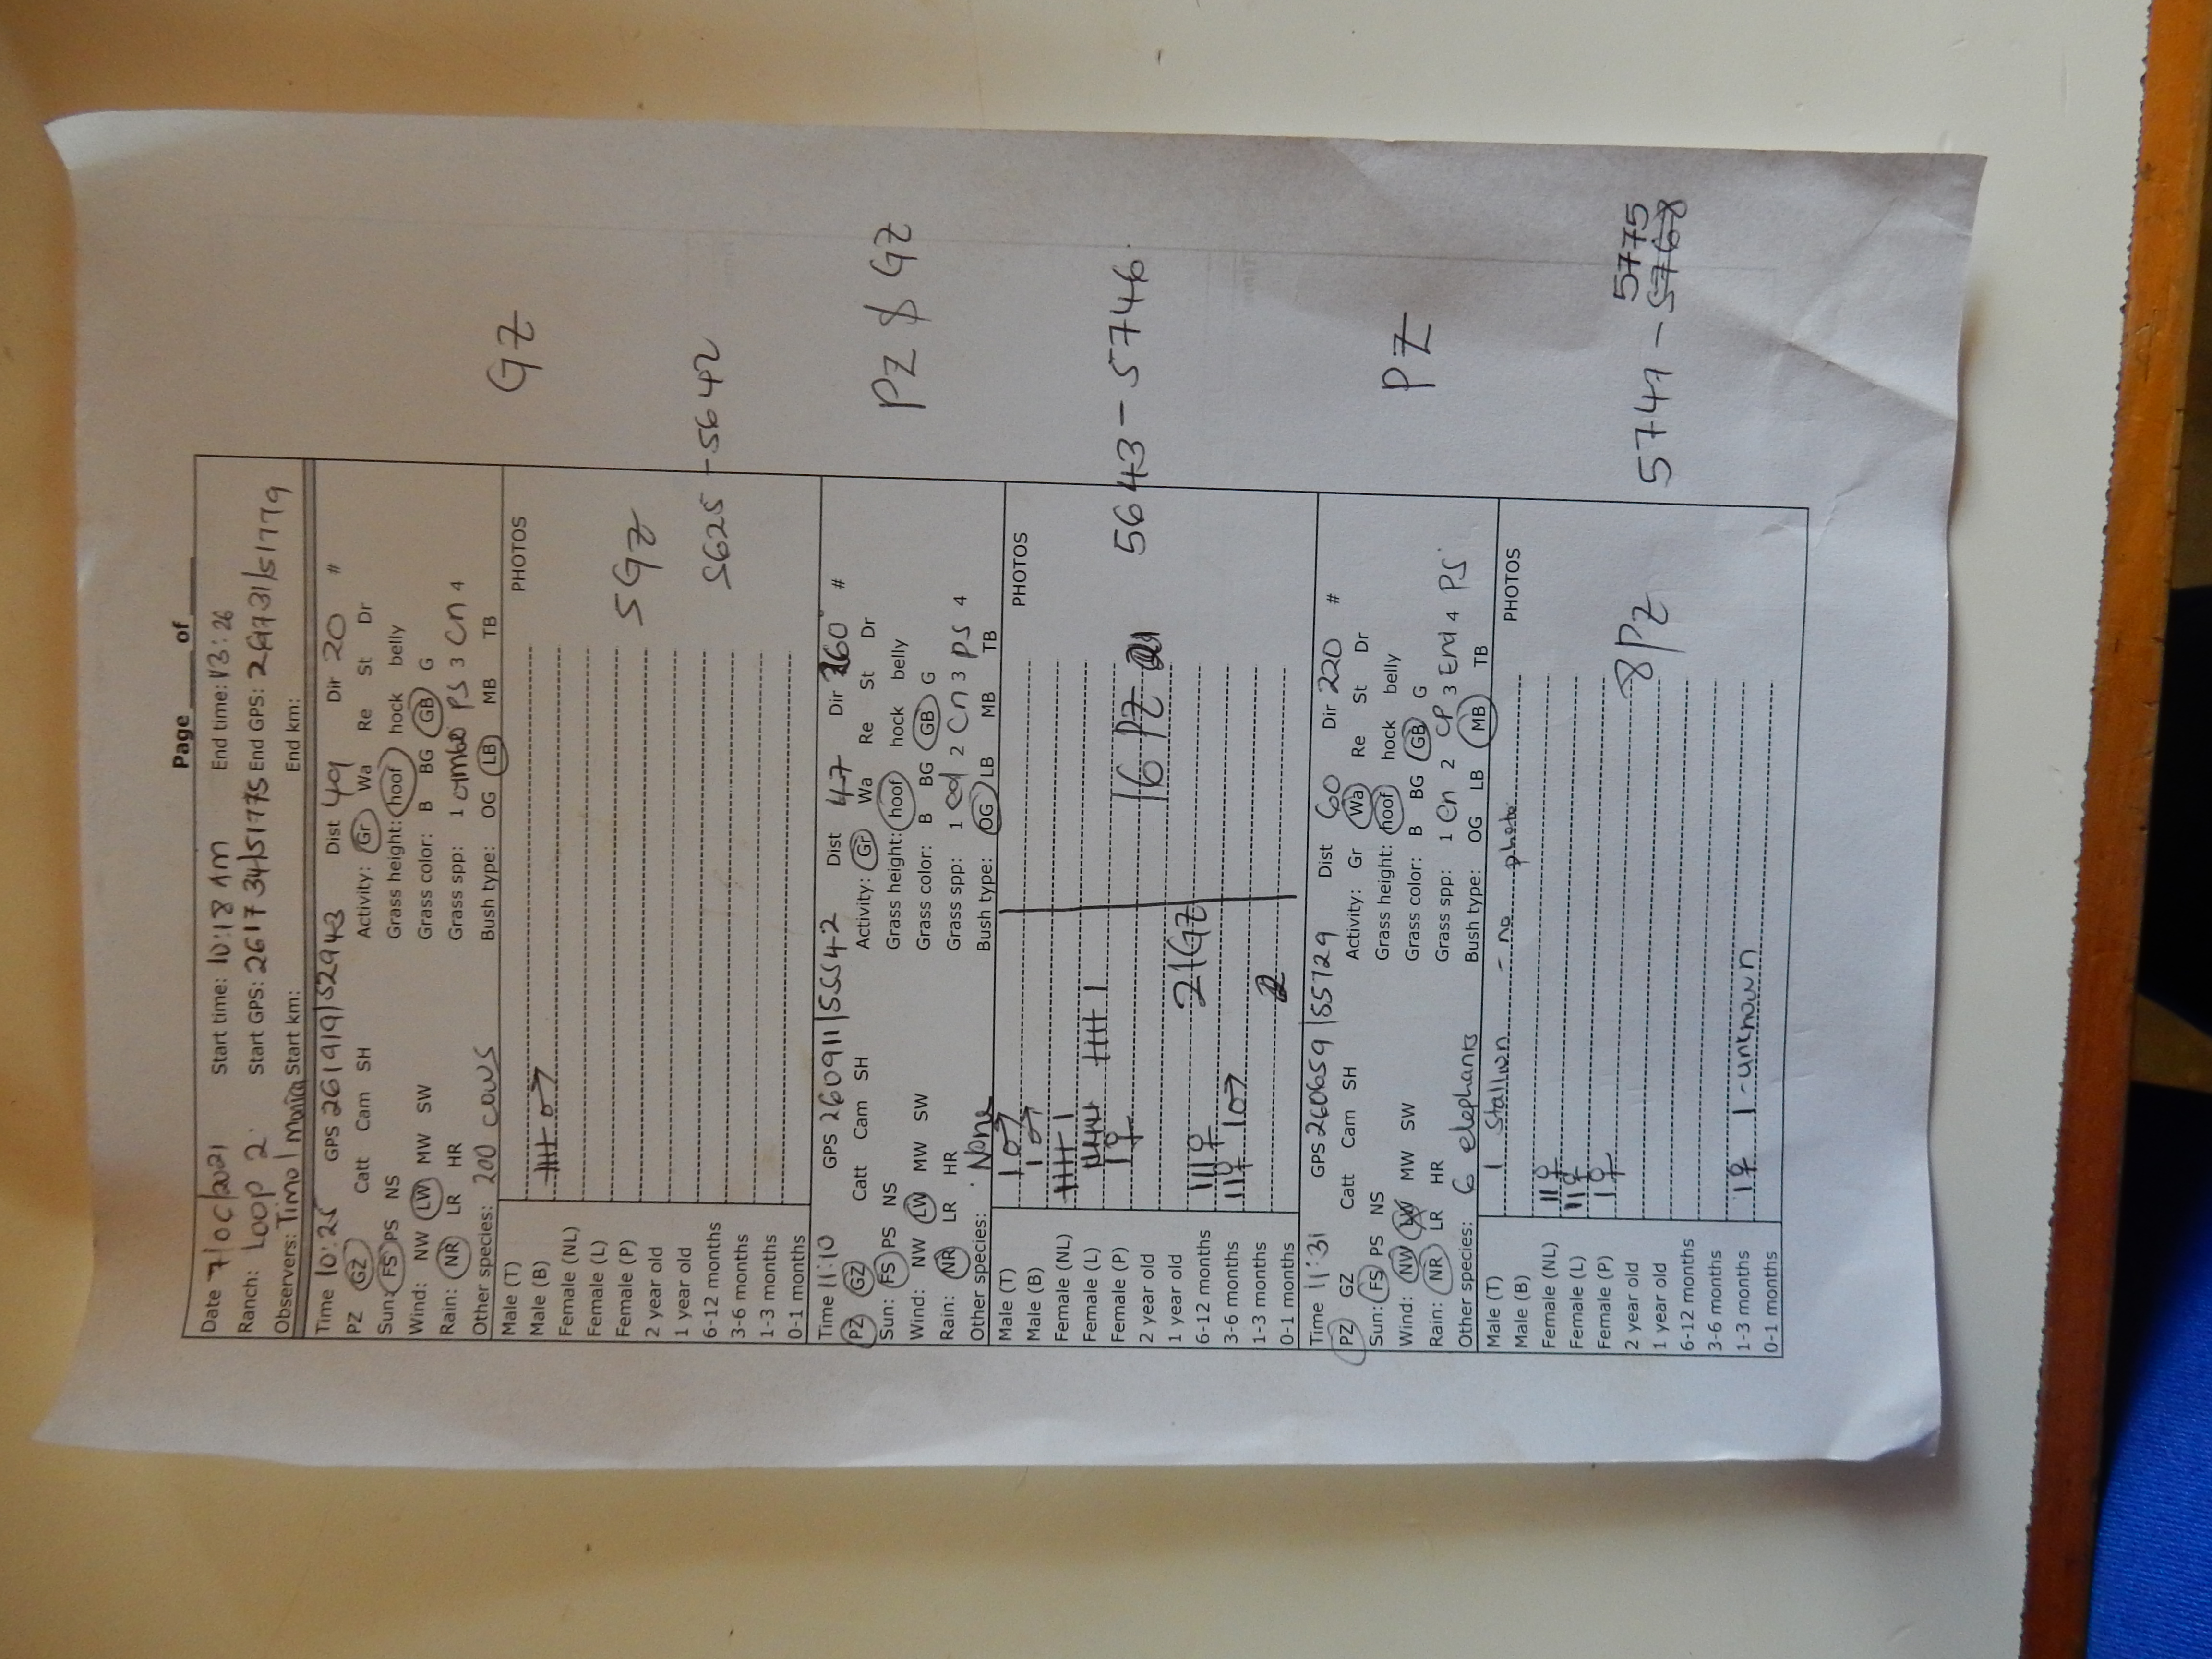 Page ____ of ____
Date 7/oc/2021 Start time: 10:18 AM End time: 13:26
Ranch: Loop 2 Start GPS: 261734/51775 End GPS: 51779
Observers: Timo / Monica Start km: End km:
Time 10:25 GPS 261919/52943 Dist 49 Dir 20 #
PZ GZ Catt Cam SH Activity: Gr Wa Re St Dr
Sun: FS PS NS Grass height: hoof hock belly
Wind: NW LW MW SW Grass color: B BG GB G
Rain: NR LR HR Grass spp: 1 PS 3 Cn 4
Other species: 200 cows Bush type: OG LB MB TB
GZ
Male (T) PHOTOS
Male (B) 卌 ♂
Female (NL)
Female (L)
Female (P) 5GZ
2 year old
1 year old
6-12 months 5625-5642
3-6 months
1-3 months
0-1 months
Time 11:10 GPS 260911/55542 Dist 47 Dir 260° #
PZ GZ Catt Cam SH Activity: Gr Wa Re St Dr
Sun: FS PS NS Grass height: hoof hock belly
PZ $ GZ
Wind: NW LW MW SW Grass color: B BG GB G
Rain: NR LR HR Grass spp: 1 2 Cn 3 ps 4
Other species: None Bush type: OG LB MB TB
Male (T) 1 ♂ PHOTOS
Male (B) 1 ♂
Female (NL) 卌 1
Female (L) 卌 卌 1
Female (P) 1 ♀ 16 PZ 5643-5746
2 year old
1 year old 21GZ
6-12 months 111 ♀
3-6 months 11 ♀ 1 ♂
1-3 months
0-1 months
Time 11:31 GPS 260659/55729 Dist 60 Dir 220 #
PZ GZ Catt Cam SH Activity: Gr Wa Re St Dr
Sun: FS PS NS Grass height: hoof hock belly
Wind: NW LW MW SW Grass color: B BG GB G
PZ
Rain: NR LR HR Grass spp: 1 Cn 2 CP 3 End 4 PS
Other species: 6 elephants Bush type: OG LB MB TB
Male (T) 1 Stallion - no photo PHOTOS
Male (B)
Female (NL) 11 ♀
Female (L) 11 ♀
Female (P) 1 ♀
2 year old 8PZ 5775
1 year old 5747-5768
6-12 months
3-6 months
1-3 months 1 ♀ 1-unknown
0-1 months